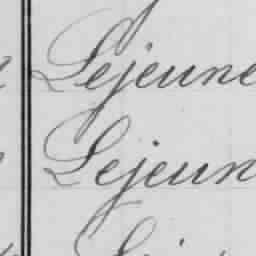 Lejeune
Lejeun